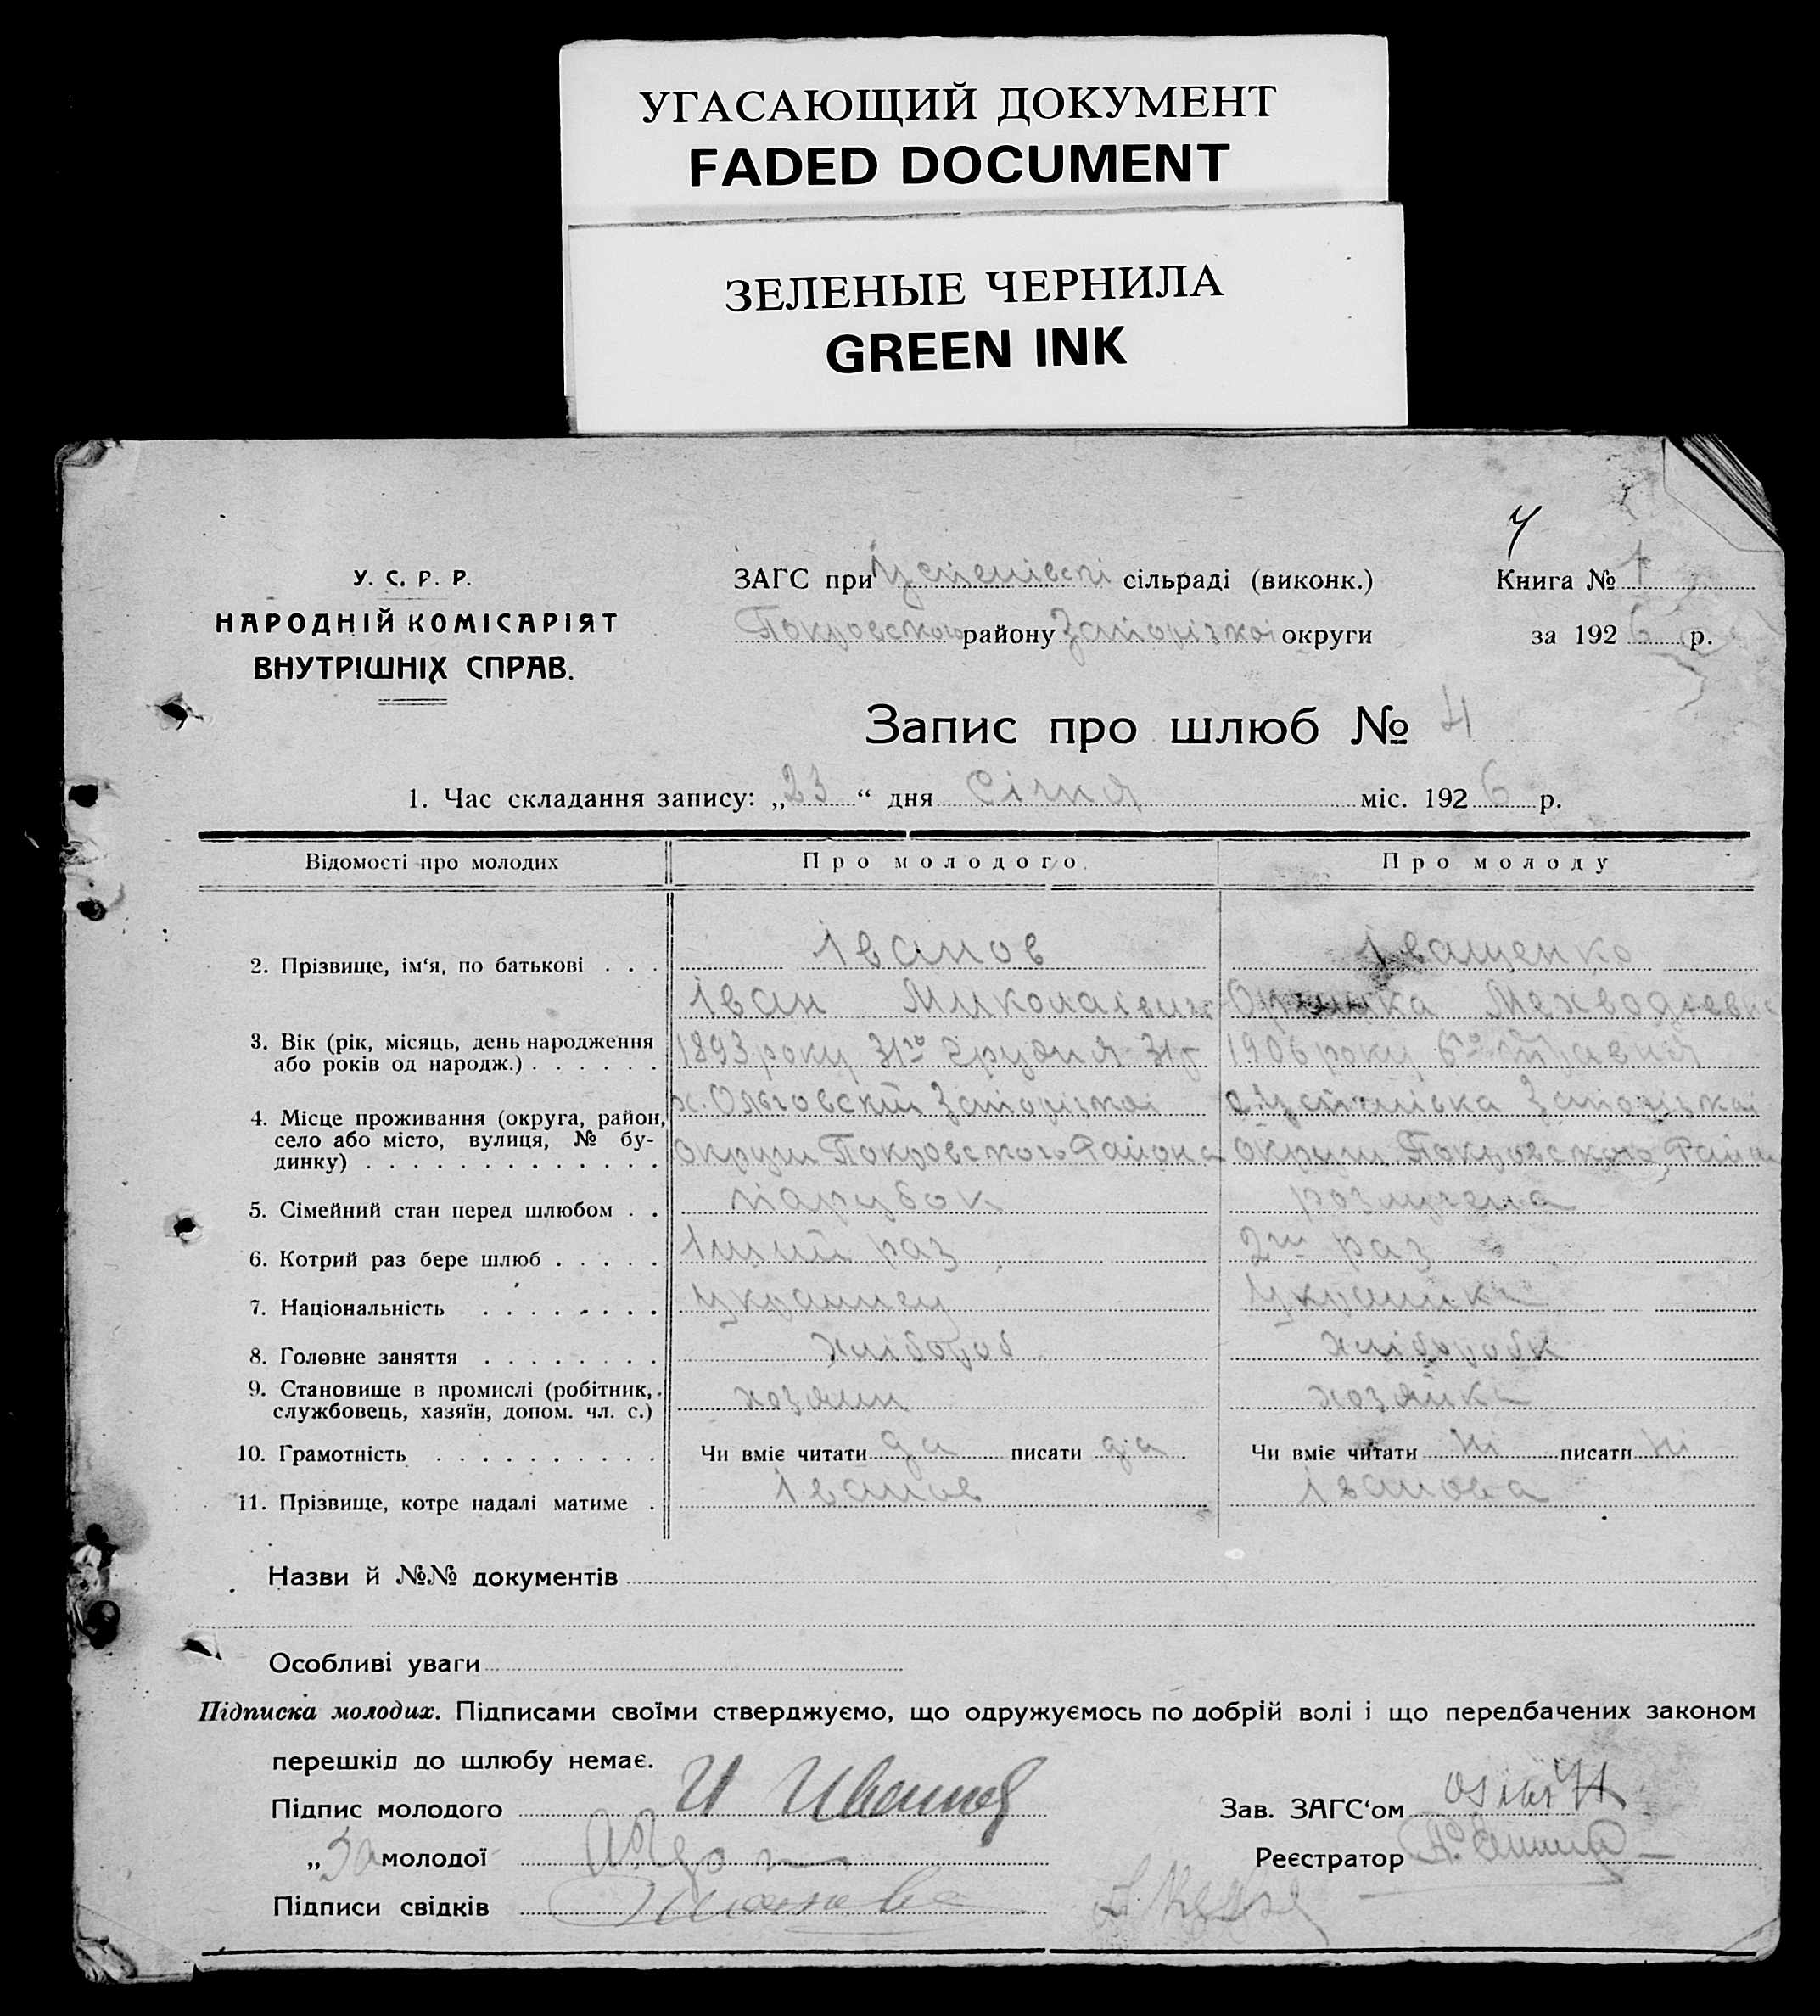 УГАСАЮЩИЙ ДОКУМЕНТ
FADED DOCUMENT
ЗЕЛЕНЫЕ ЧЕРНИЛА
GREEN INK
У. С. Р. Р.
НАРОДНІЙ КОМІСАРІЯТ
ВНУТРІШНІХ СПРАВ.
ЗАГС при сільраді (виконк.)
Покровского району Запорізкоі округи
Книга № 1
за 1926 р.
Запис про шлюб № 4
1. Час складання запису: „23“ дня Січня міс. 1926 р.
Відомості про молодих Про молодого. Про молоду
2. Прізвище, ім'я, по батькові . . . Іванов Іващенко
Іван Миколаівич
3. Вік (рік, місяць, день народження 1893 року 31го Грудня 1906 року 6го Травня
або років од народж.) . . . . . .
4. Місце проживання (округа, район, х. Ольговский Запорізкоі Запорізкоі
село або місто, вулиця, № бу- округи Покровского Района округи Покровского
динку) . . . . . . . . . . . . .
5. Сімейний стан перед шлюбом . . парубок розлучена
6. Котрий раз бере шлюб . . . . . раз 2ий раз
7. Національність . . . . . . . . украинец украинка
8. Головне заняття . . . . . . . . хлібороб хліборобк
9. Становище в промислі (робітник, хозяин хозяйка
службовець, хазяїн, допом. чл. с.)
10. Грамотність . . . . . . . . . . Чи вміє читати да писати да Чи вміє читати ні писати ні
11. Прізвище, котре надалі матиме . Іванов Іванова
Назви й №№ документів
Особливі уваги
Підписка молодих. Підписами своїми стверджуємо, що одружуємось по добрій волі і що передбачених законом
перешкід до шлюбу немає.
Підпис молодого И Иванов Зав. ЗАГС'ом
„ За молодої Реєстратор
Підписи свідків